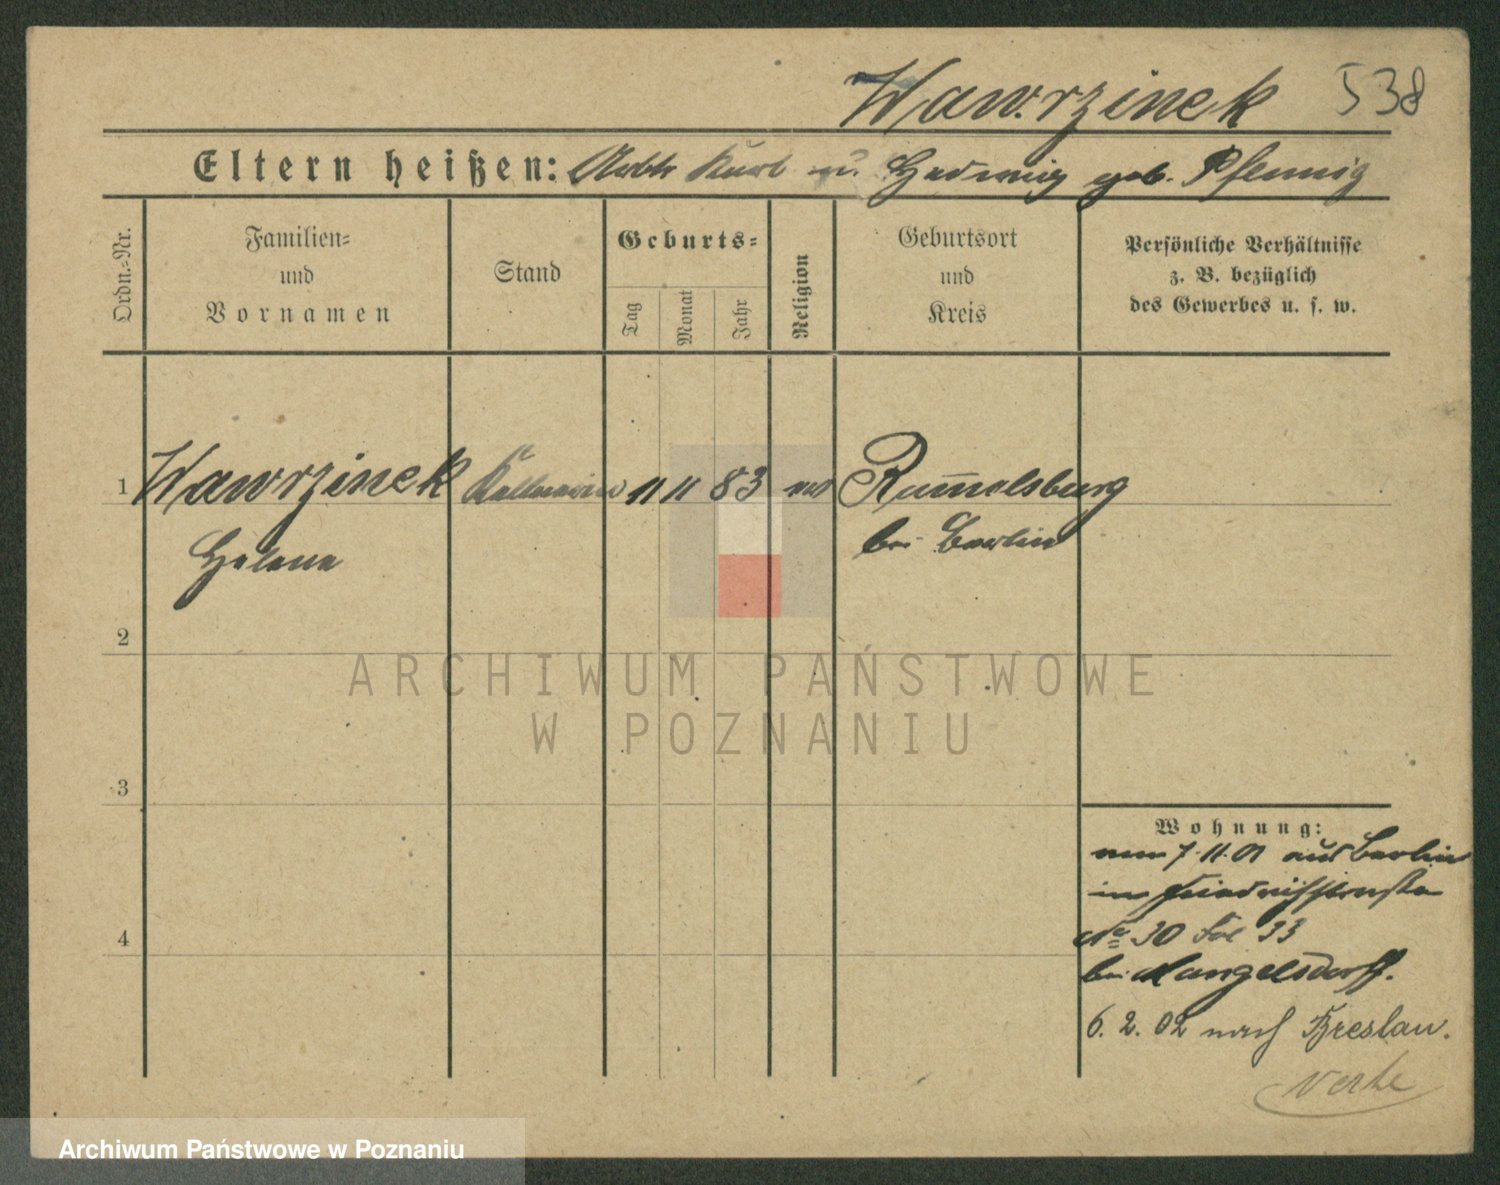 Wawrzinek 538
Eltern heißen: Arbtr Kurt u. Hedwig geb. Pfennig
Ordn.-Nr.
Familien-
und
Vornamen
Stand
Geburts-
Tag
Monat
Jahr
Religion
Geburtsort
und
Kreis
Persönliche Verhältnisse
z. B. bezüglich
des Gewerbes u. s. w.
1 Wawrzinek Kellnerin 11 11 83 Rum̅elsburg
Helene
bei Berlin
2
ARCHIWUM PAŃSTWOWE
W POZNANIU
3
Wohnung:
7.11.01 aus Berlin
in
No 30 33
bei Mangelsdorff.
4
6.2.02 nach Breslau.
Archiwum Państwowe w Poznaniu